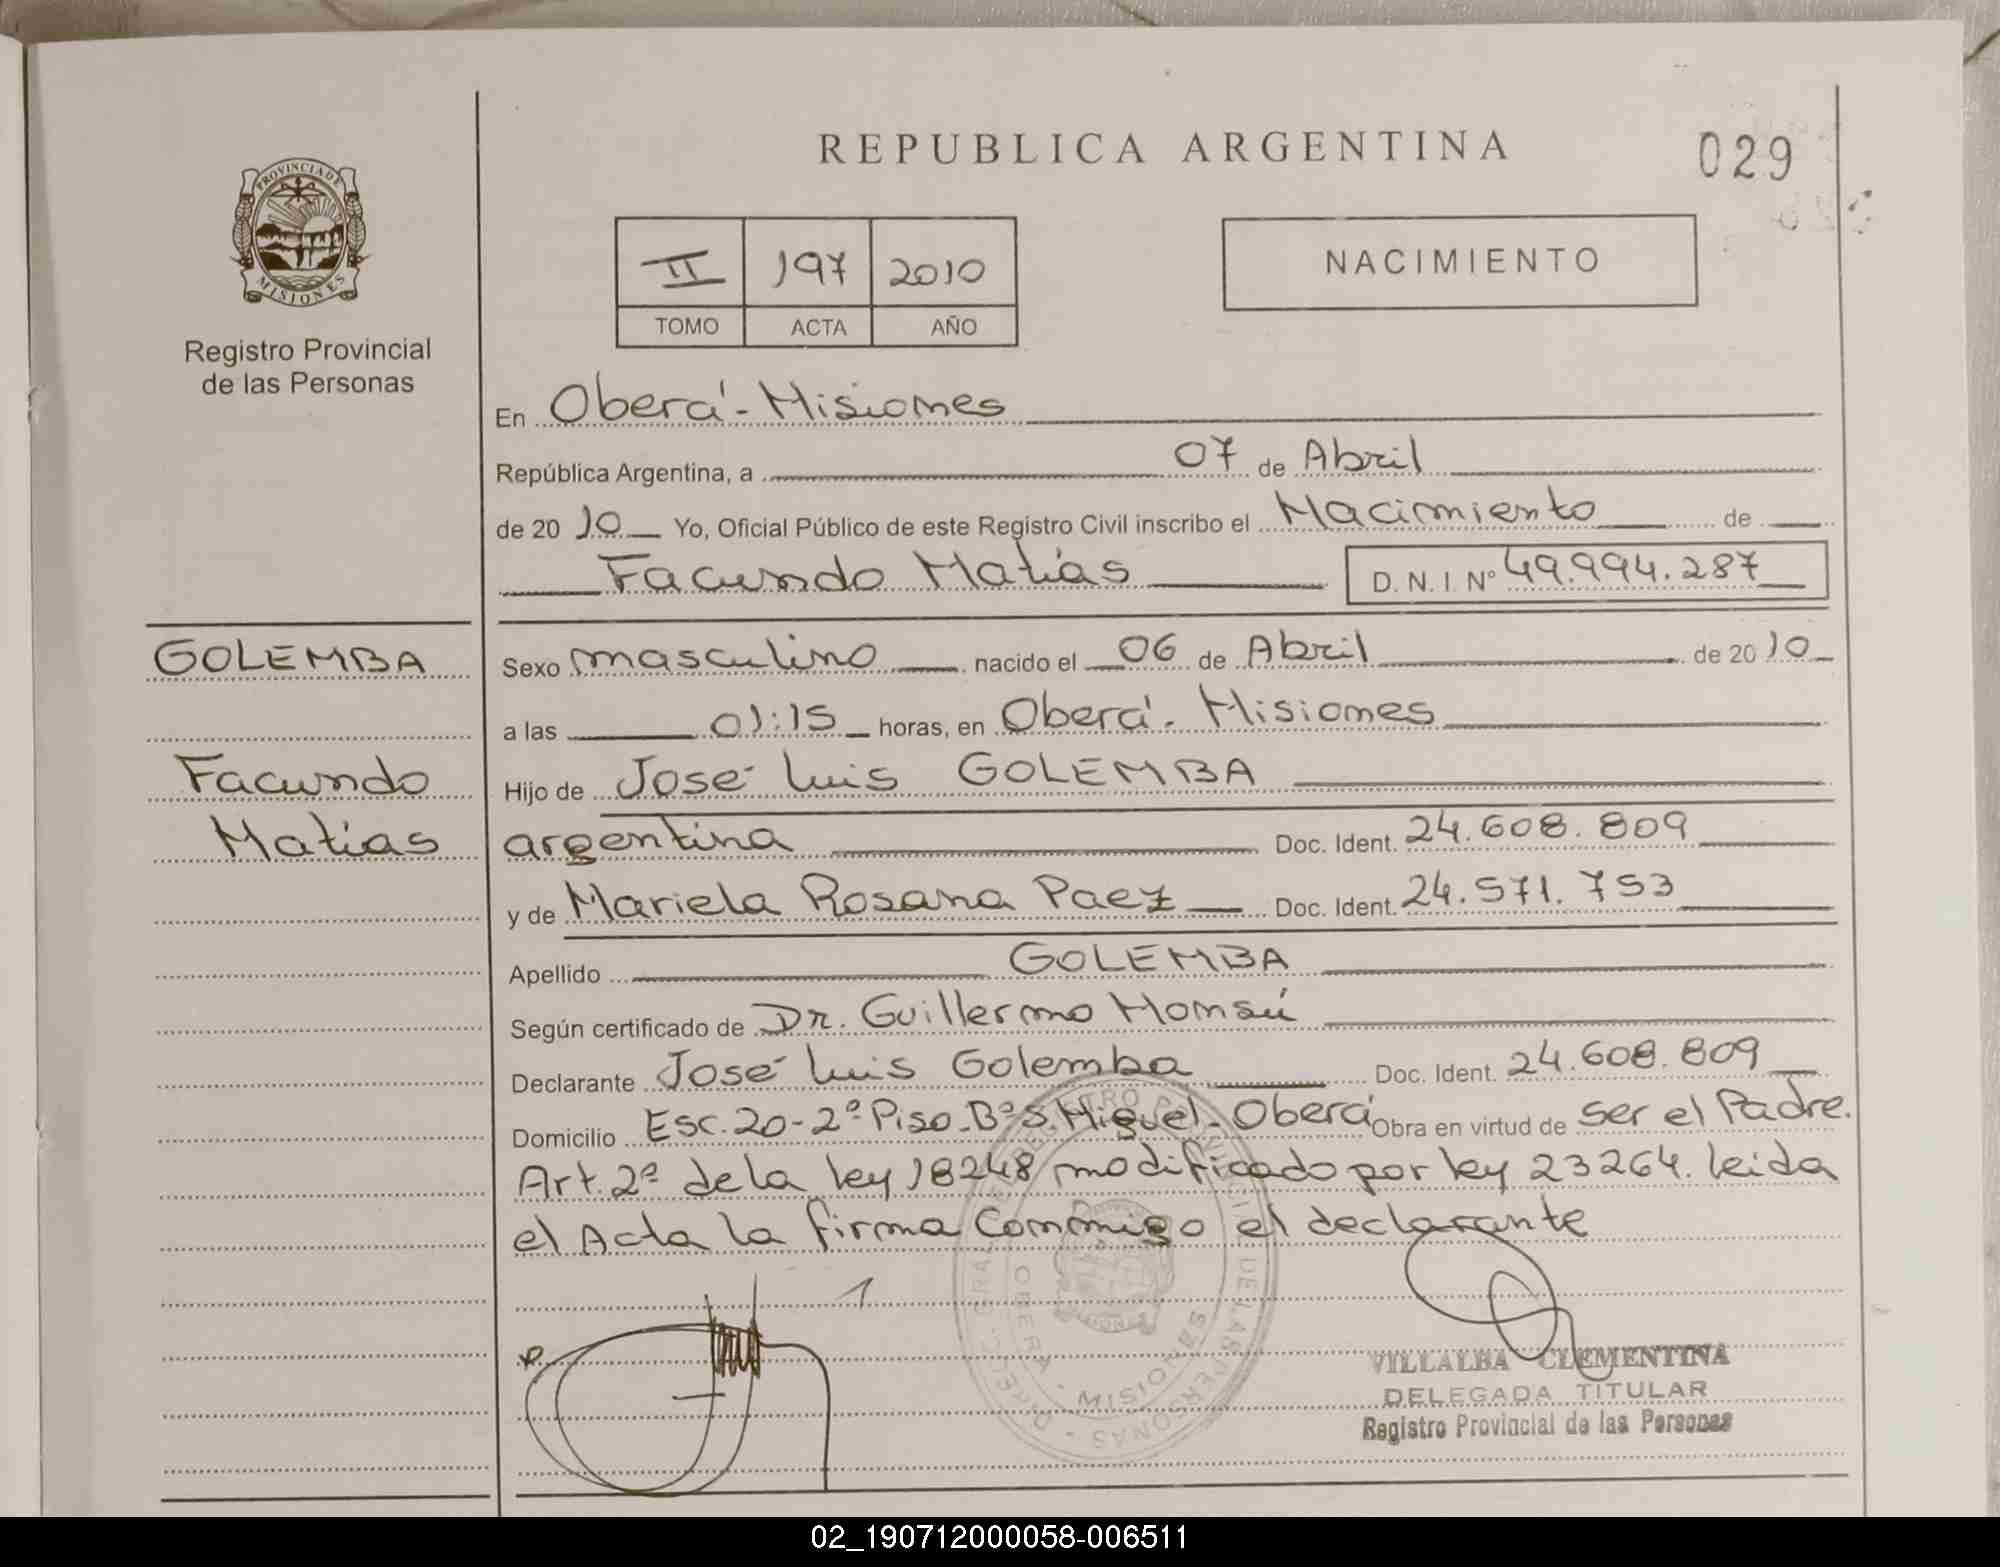 REPUBLICA ARGENTINA
029
PROVINCIA DE
MISIONES
Registro Provincial
de las Personas
II 197 2010
TOMO ACTA AÑO
NACIMIENTO
En Oberá - Misiones
República Argentina, a 07 de Abril
de 20 10 Yo, Oficial Público de este Registro Civil inscribo el Nacimiento de
Facundo Matías D.N.I. Nº 49.994.287
GOLEMBA
Facundo
Matías
Sexo masculino nacido el 06 de Abril de 20 10
a las 01:15 horas, en Oberá - Misiones
Hijo de José Luis GOLEMBA
argentina Doc. Ident. 24.608.809
y de Mariela Rosana Paez Doc. Ident. 24.571.753
Apellido GOLEMBA
Según certificado de Dr. Guillermo
Declarante José Luis Golemba Doc. Ident. 24.608.809
Domicilio Esc. 20 - 2º Piso - Bº S. Miguel - Oberá Obra en virtud de ser el Padre.
Art. 2º de la ley 18248 modificado por ley 23264. leida
el Acta la firma Conmigo el declarante
OBERA - MISIONES
VILLALBA CLEMENTINA
DELEGADA TITULAR
Registro Provincial de las Personas
02_190712000058-006511